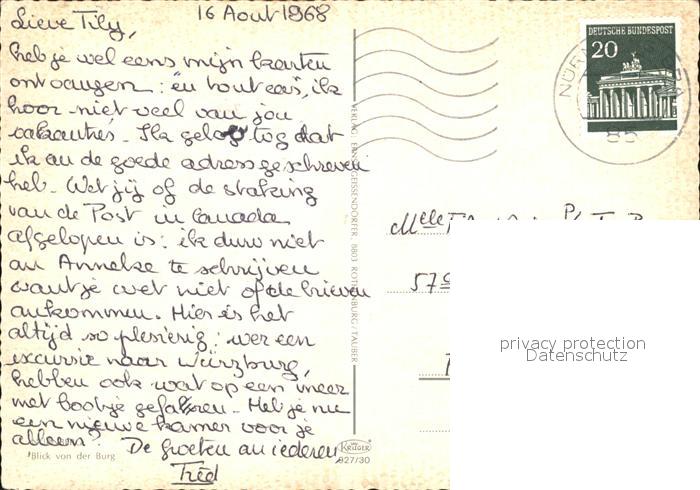 16 Aout 1968
Lieve Tily,
heb je wel eens mijn kaarten
ontvangen: "en tout cas", ik
hoor niet veel van jou
vakanties. Ik geloof tog dat
ik au de goede adres geschreven
heb. Wet jij of de staking
van de Post in Canada
afgelopen is: ik durv niet
au Anneke te schrijven
want je wet niet of de brieven
aukommen. Hier is het
altijd so plesierig: wer een
excursie naar Würzburg,
hebben ook wat op een meer
met bootje gefaren. Heb je nu
een nieuwe kamer voor je
alleen? De groeten au iederen
Fred
Blick von der Burg
VERLAG ERNST GEISSENDÖRFER, 8803 ROTHENBURG/TAUBER
KRÜGER
927/30
DEUTSCHE BUNDESPOST
20
NÜRN
85
Melle
579
privacy protection
Datenschutz